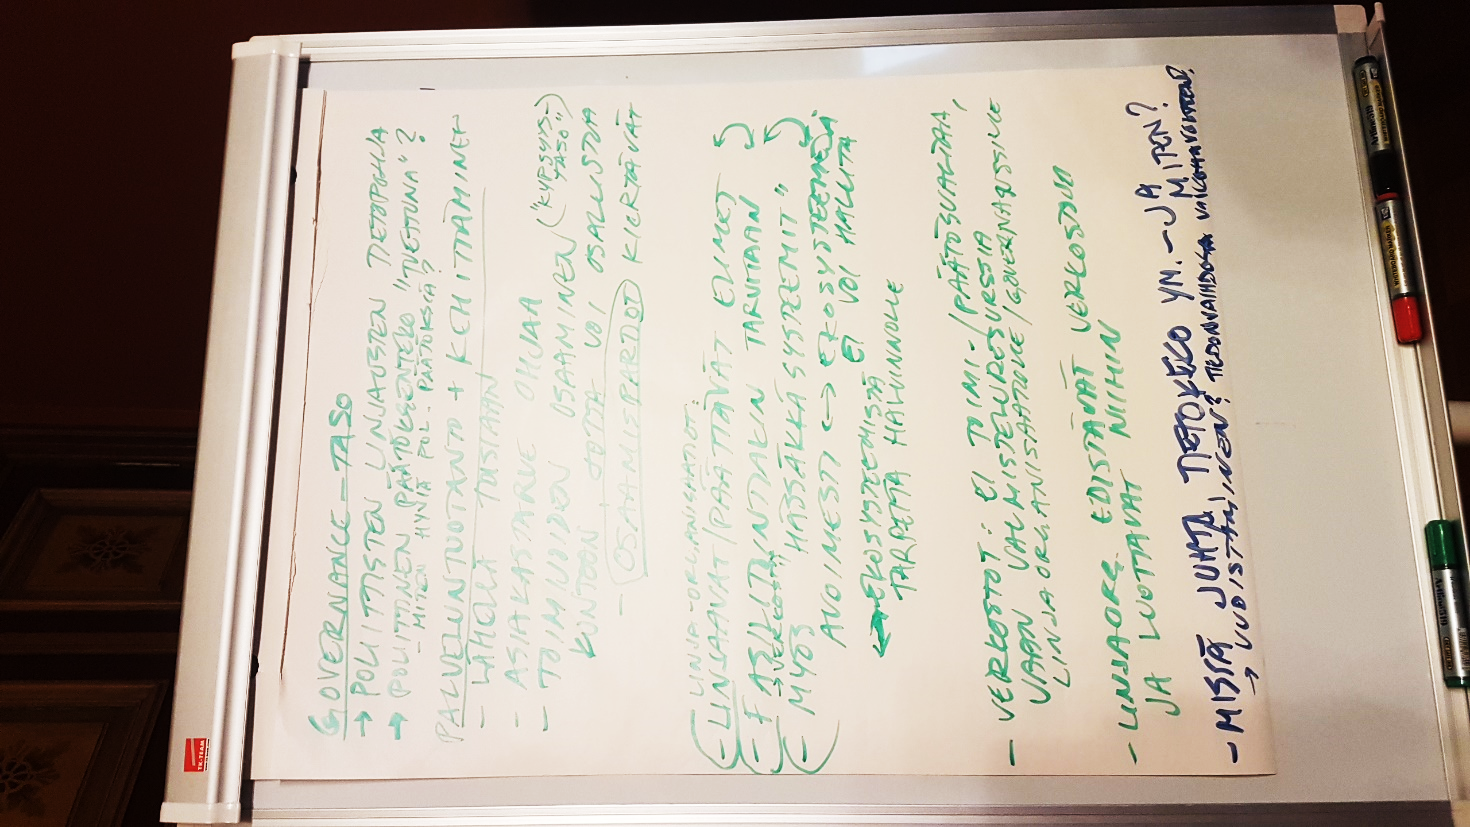 GOVERNANCE-TASO
→ POLIITTISTEN LINJAUSTEN TIETOPOHJA
→ POLIITTINEN PÄÄTÖKSENTEKO "VIETUNA"?
MITEN HYVIÄ POL. PÄÄTÖKSIÄ?
PALVELUNTUOTANTO + KEHITTÄMINEN
- LÄHELLÄ TOISIAAN
- ASIAKASTARVE OHJAA
- TOIMIJOIDEN OSAAMINEN ("KYPSYYS-
TASO")
KUNTOON JOTTA VOI OSALLISTUA
- OSAAMISPARDOT KIERTÄVÄT
LINJA-ORGANISAATIOT:
- LINJAAVAT/PÄÄTTÄVÄT ELIMET
- ASIANTUNTIJAKIN TARVITAAN
→ "VERKOSTO"
- MYÖS "HÄSSÄKKÄSYSTEEMIT"
AVOIMESTI ↔ EKOSYSTEEMEJÄ
EI VOI HALLITA
← EKOSYSTEEMISTÄ
TARPEITA HALLINNOLLE
- VERKOSTOT: EI TOIMI-/PÄÄTÖSVALTAA,
VAAN VALMISTELURESURSSIA
LINJAORGANISAATIOLLE/GOVERNANSSILLE
- LINJAORG. EDISTÄVÄT VERKOSTOJA
JA LUOTTAVAT NIIHIN
- MISSÄ JUHTA, TIETOKEKO YM. - JA
MITEN?
→ UUDISTAMINEN? TIEDONVAIHDOSTA VAIKUTTAVUUTEEN?
TK-TEAM
Artline